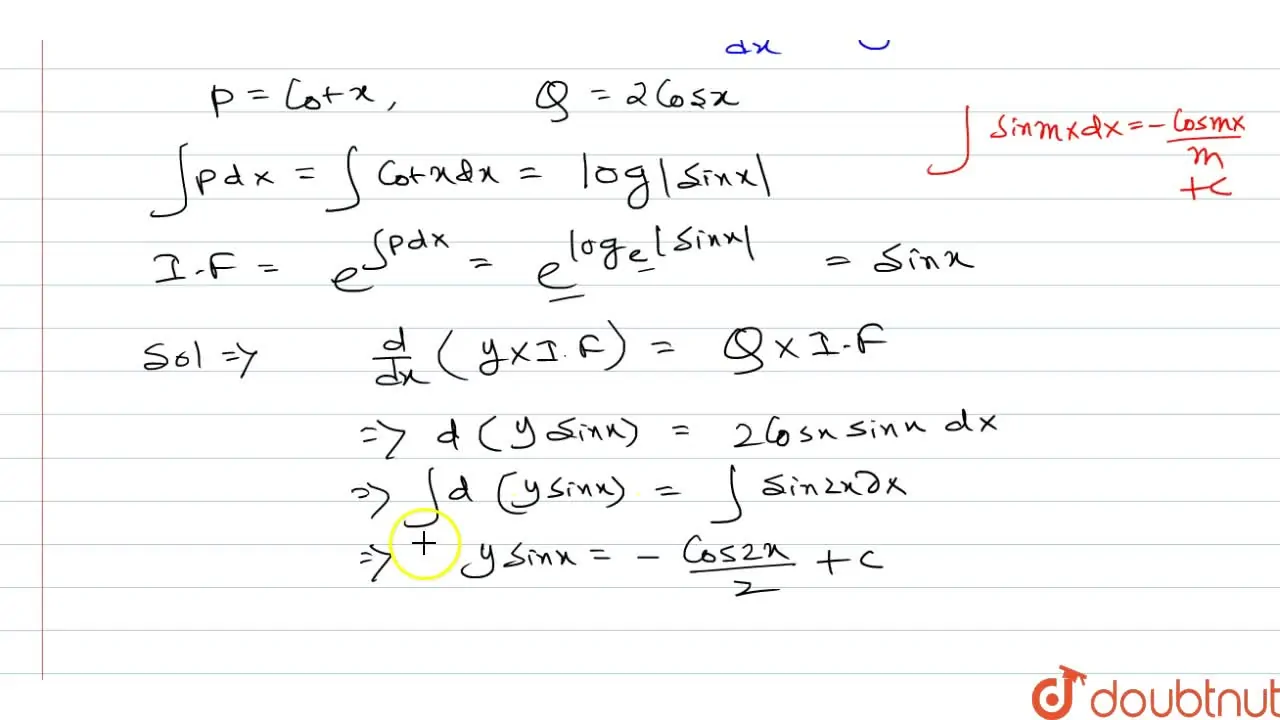 dx
P = Cotx, Q = 2Cosx
∫ sinmxdx = - Cosmx/m + c
∫Pdx = ∫ Cotxdx = log|sinx|
I.F = e^∫Pdx = e^log_e|sinx| = sinx
Sol ⇒ d/dx (y × I.F) = Q × I.F
⇒ d (y sinx) = 2Cosx sinx dx
⇒ ∫ d (y sinx) = ∫ sin2x dx
⇒ y sinx = - Cos2x/2 + c
doubtnut